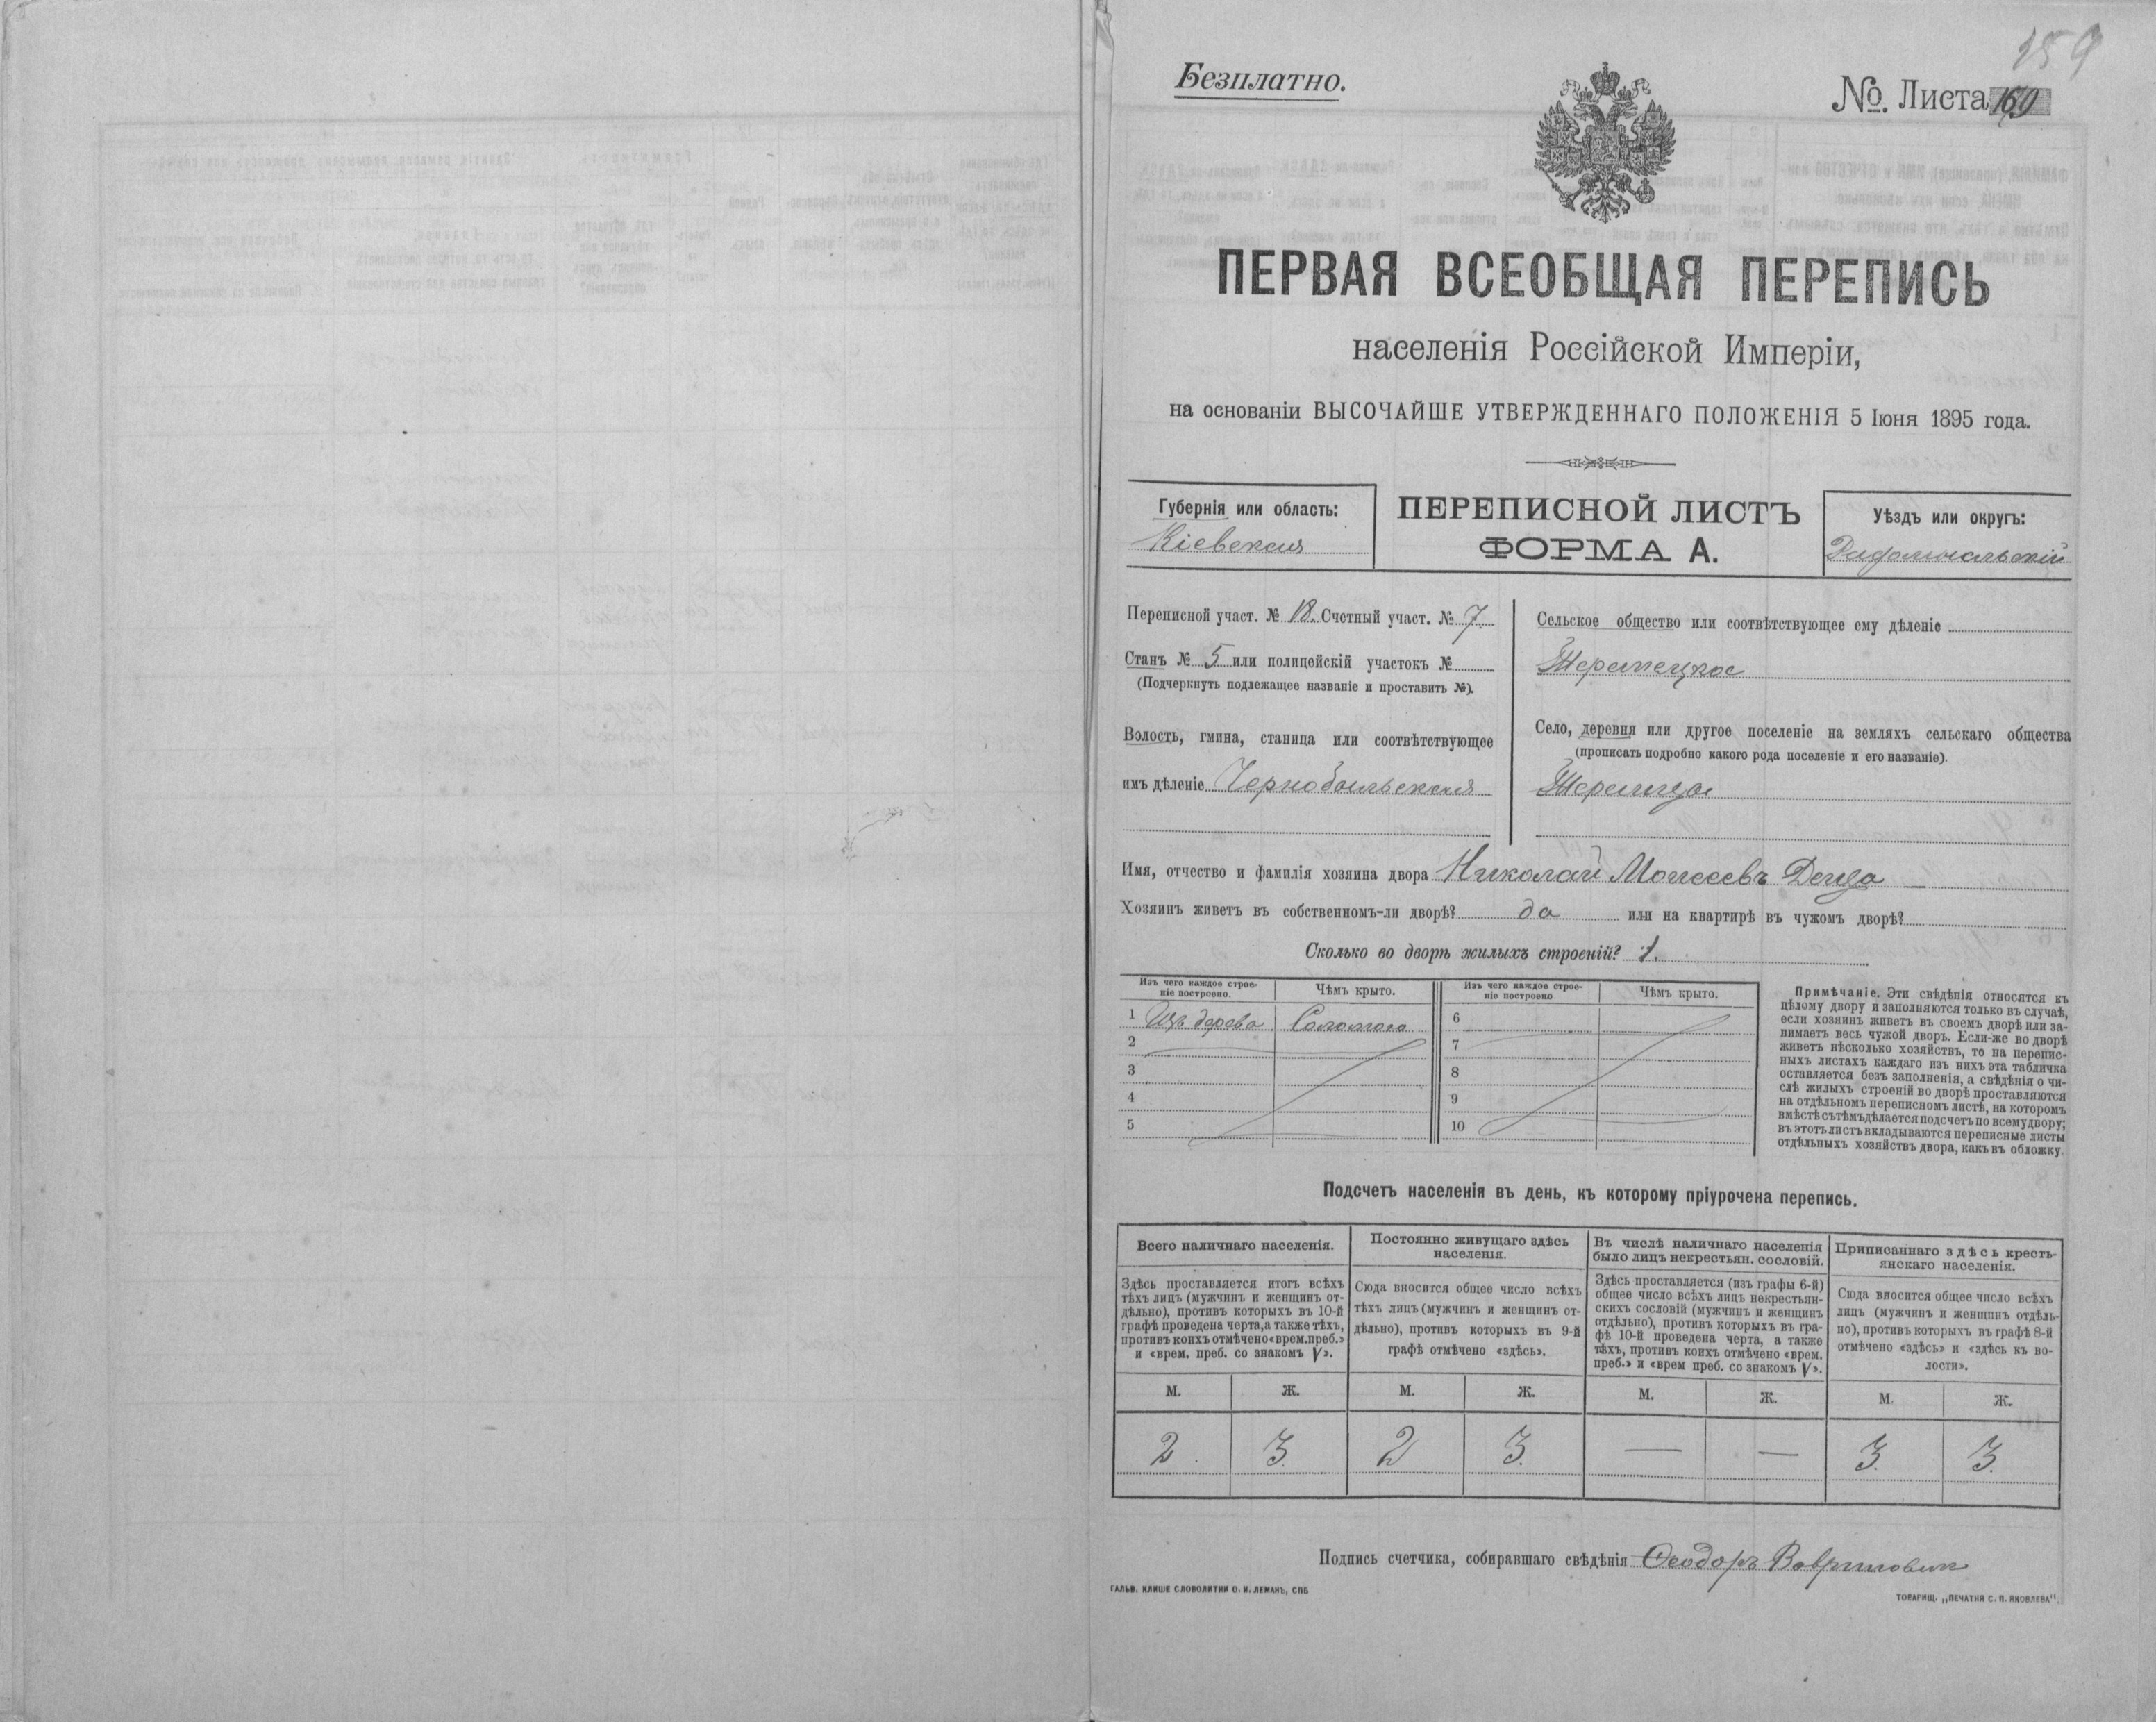 159
Безплатно.
№. Листа 169
ПЕРВАЯ ВСЕОБЩАЯ ПЕРЕПИСЬ
населенія Россійской Имперіи,
на основаніи ВЫСОЧАЙШЕ УТВЕРЖДЕННАГО ПОЛОЖЕНІЯ 5 Іюня 1895 года.
Губернія или область:
Кіевская
ПЕРЕПИСНОЙ ЛИСТЪ
ФОРМА А.
Уѣздъ или округъ:
Радомысльскій
Переписной участ. № 18. Счетный участ. № 7.
Станъ № 5 или полицейскій участокъ №
(Подчеркнуть подлежащее названіе и проставить №).
Волость, гмина, станица или соотвѣтствующее
имъ дѣленіе Чернобыльская
Сельское общество или соотвѣтствующее ему дѣленіе
Шепелецкое
Село, деревня или другое поселеніе на земляхъ сельскаго общества
(прописать подробно какого рода поселеніе и его названіе).
Имя, отчество и фамилія хозяина двора Николай Моисеевъ
Хозяинъ живетъ въ собственномъ-ли дворѣ? да или на квартирѣ въ чужомъ дворѣ?
Сколько во дворѣ жилыхъ строеній? 1.
Изъ чего каждое строе-
ніе построено.
Чѣмъ крыто.
Изъ чего каждое строе-
ніе построено
Чѣмъ крыто.
1 Изъ дерева Соломою 6
2 7
3 8
4 9
5 10
Примѣчаніе. Эти свѣдѣнія относятся къ
цѣлому двору и заполняются только въ случаѣ,
если хозяинъ живетъ въ своемъ дворѣ или за-
нимаетъ весь чужой дворъ. Если-же во дворѣ
живетъ нѣсколько хозяйствъ, то на перепис-
ныхъ листахъ каждаго изъ нихъ эта табличка
оставляется безъ заполненія, а свѣдѣнія о чи-
слѣ жилыхъ строеній во дворѣ проставляются
на отдѣльномъ переписномъ листѣ, на которомъ
вмѣстѣ съ тѣмъ дѣлается подсчетъ по всему двору;
въ этотъ листъ вкладываются переписные листы
отдѣльныхъ хозяйствъ двора, какъ въ обложку.
Подсчетъ населенія въ день, къ которому пріурочена перепись.
Всего наличнаго населенія.
Здѣсь проставляется итогъ всѣхъ
тѣхъ лицъ (мужчинъ и женщинъ от-
дѣльно), противъ которыхъ въ 10-й
графѣ проведена черта, а также тѣхъ,
противъ коихъ отмѣчено «врем. преб.»
и «врем. преб. со знакомъ V».
Постоянно живущаго здѣсь
населенія.
Сюда вносится общее число всѣхъ
тѣхъ лицъ (мужчинъ и женщинъ от-
дѣльно), противъ которыхъ въ 9-й
графѣ отмѣчено «здѣсь».
Въ числѣ наличнаго населенія
было лицъ некрестьян. сословій.
Здѣсь проставляется (изъ графы 6-й)
общее число всѣхъ лицъ некрестьян-
скихъ сословій (мужчинъ и женщинъ
отдѣльно), противъ которыхъ въ гра-
фѣ 10-й проведена черта, а также
тѣхъ, противъ коихъ отмѣчено «врем.
преб.» и «врем преб. со знакомъ V».
Приписаннаго здѣсь кресть-
янскаго населенія.
Сюда вносится общее число всѣхъ
лицъ (мужчинъ и женщинъ отдѣль-
но), противъ которыхъ въ графѣ 8-й
отмѣчено «здѣсь» и «здѣсь къ во-
лости».
М. Ж. М. Ж. М. Ж. М. Ж.
2. 3. 2 3. — — 3. 3.
Подпись счетчика, собиравшаго свѣдѣнія Ѳеодоръ
ГАЛЬВ. КЛИШЕ СЛОВОЛИТНИ О. И. ЛЕМАНЪ, СПБ
ТОВАРИЩ. „ПЕЧАТНЯ С. П. ЯКОВЛЕВА".